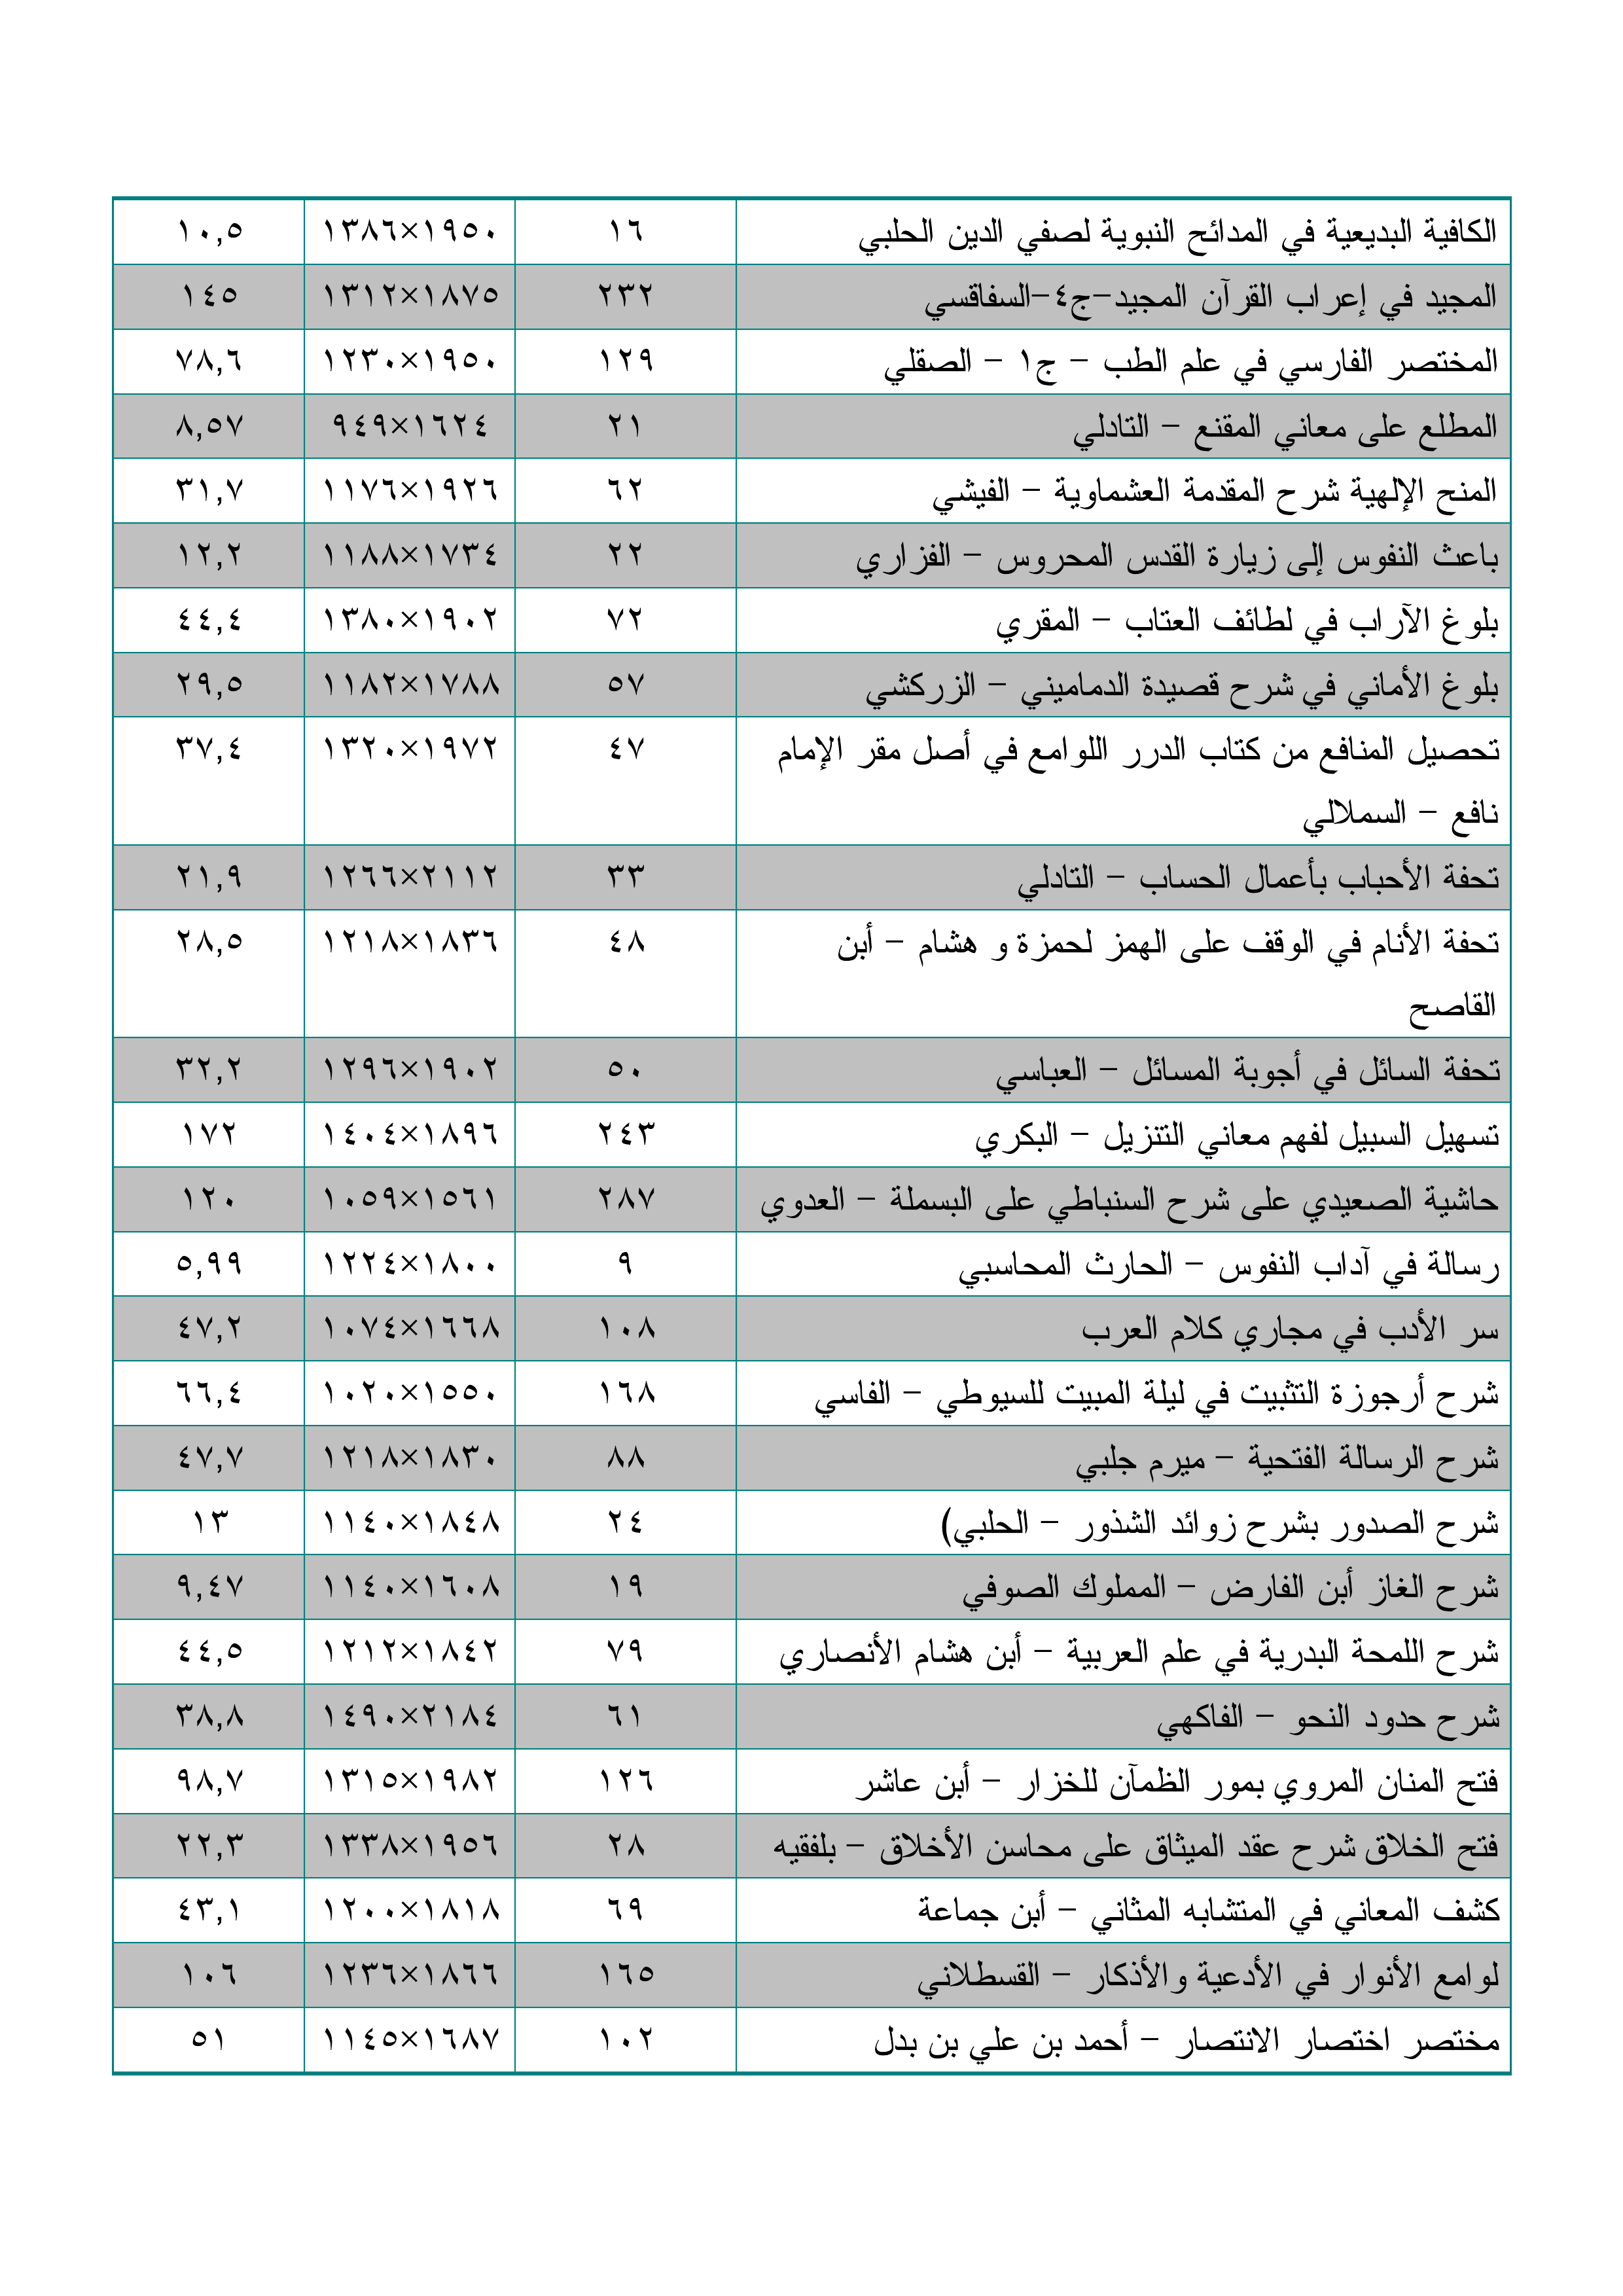 الكافية البديعية في المدائح النبوية لصفي الدين الحلبي ١٦ ١٣٨٦×١٩٥٠ ١٠,٥
المجيد في إعراب القرآن المجيد-ج٤-السفاقسي ٢٣٢ ١٣١٢×١٨٧٥ ١٤٥
المختصر الفارسي في علم الطب – ج١ – الصقلي ١٢٩ ١٢٣٠×١٩٥٠ ٧٨,٦
المطلع على معاني المقنع – التادلي ٢١ ٩٤٩×١٦٢٤ ٨,٥٧
المنح الإلهية شرح المقدمة العشماوية – الفيشي ٦٢ ١١٧٦×١٩٢٦ ٣١,٧
باعث النفوس إلى زيارة القدس المحروس – الفزاري ٢٢ ١١٨٨×١٧٣٤ ١٢,٢
بلوغ الآراب في لطائف العتاب – المقري ٧٢ ١٣٨٠×١٩٠٢ ٤٤,٤
بلوغ الأماني في شرح قصيدة الدماميني – الزركشي ٥٧ ١١٨٢×١٧٨٨ ٢٩,٥
تحصيل المنافع من كتاب الدرر اللوامع في أصل مقر الإمام ٤٧ ١٣٢٠×١٩٧٢ ٣٧,٤
نافع – السملالي
تحفة الأحباب بأعمال الحساب – التادلي ٣٣ ١٢٦٦×٢١١٢ ٢١,٩
تحفة الأنام في الوقف على الهمز لحمزة و هشام – أبن ٤٨ ١٢١٨×١٨٣٦ ٢٨,٥
القاصح
تحفة السائل في أجوبة المسائل – العباسي ٥٠ ١٢٩٦×١٩٠٢ ٣٢,٢
تسهيل السبيل لفهم معاني التنزيل – البكري ٢٤٣ ١٤٠٤×١٨٩٦ ١٧٢
حاشية الصعيدي على شرح السنباطي على البسملة – العدوي ٢٨٧ ١٠٥٩×١٥٦١ ١٢٠
رسالة في آداب النفوس – الحارث المحاسبي ٩ ١٢٢٤×١٨٠٠ ٥,٩٩
سر الأدب في مجاري كلام العرب ١٠٨ ١٠٧٤×١٦٦٨ ٤٧,٢
شرح أرجوزة التثبيت في ليلة المبيت للسيوطي – الفاسي ١٦٨ ١٠٢٠×١٥٥٠ ٦٦,٤
شرح الرسالة الفتحية – ميرم جلبي ٨٨ ١٢١٨×١٨٣٠ ٤٧,٧
شرح الصدور بشرح زوائد الشذور – الحلبي) ٢٤ ١١٤٠×١٨٤٨ ١٣
شرح الغاز أبن الفارض – المملوك الصوفي ١٩ ١١٤٠×١٦٠٨ ٩,٤٧
شرح اللمحة البدرية في علم العربية – أبن هشام الأنصاري ٧٩ ١٢١٢×١٨٤٢ ٤٤,٥
شرح حدود النحو – الفاكهي ٦١ ١٤٩٠×٢١٨٤ ٣٨,٨
فتح المنان المروي بمور الظمآن للخزار – أبن عاشر ١٢٦ ١٣١٥×١٩٨٢ ٩٨,٧
فتح الخلاق شرح عقد الميثاق على محاسن الأخلاق – بلفقيه ٢٨ ١٣٣٨×١٩٥٦ ٢٢,٣
كشف المعاني في المتشابه المثاني – أبن جماعة ٦٩ ١٢٠٠×١٨١٨ ٤٣,١
لوامع الأنوار في الأدعية والأذكار – القسطلاني ١٦٥ ١٢٣٦×١٨٦٦ ١٠٦
مختصر اختصار الانتصار – أحمد بن علي بن بدل ١٠٢ ١١٤٥×١٦٨٧ ٥١